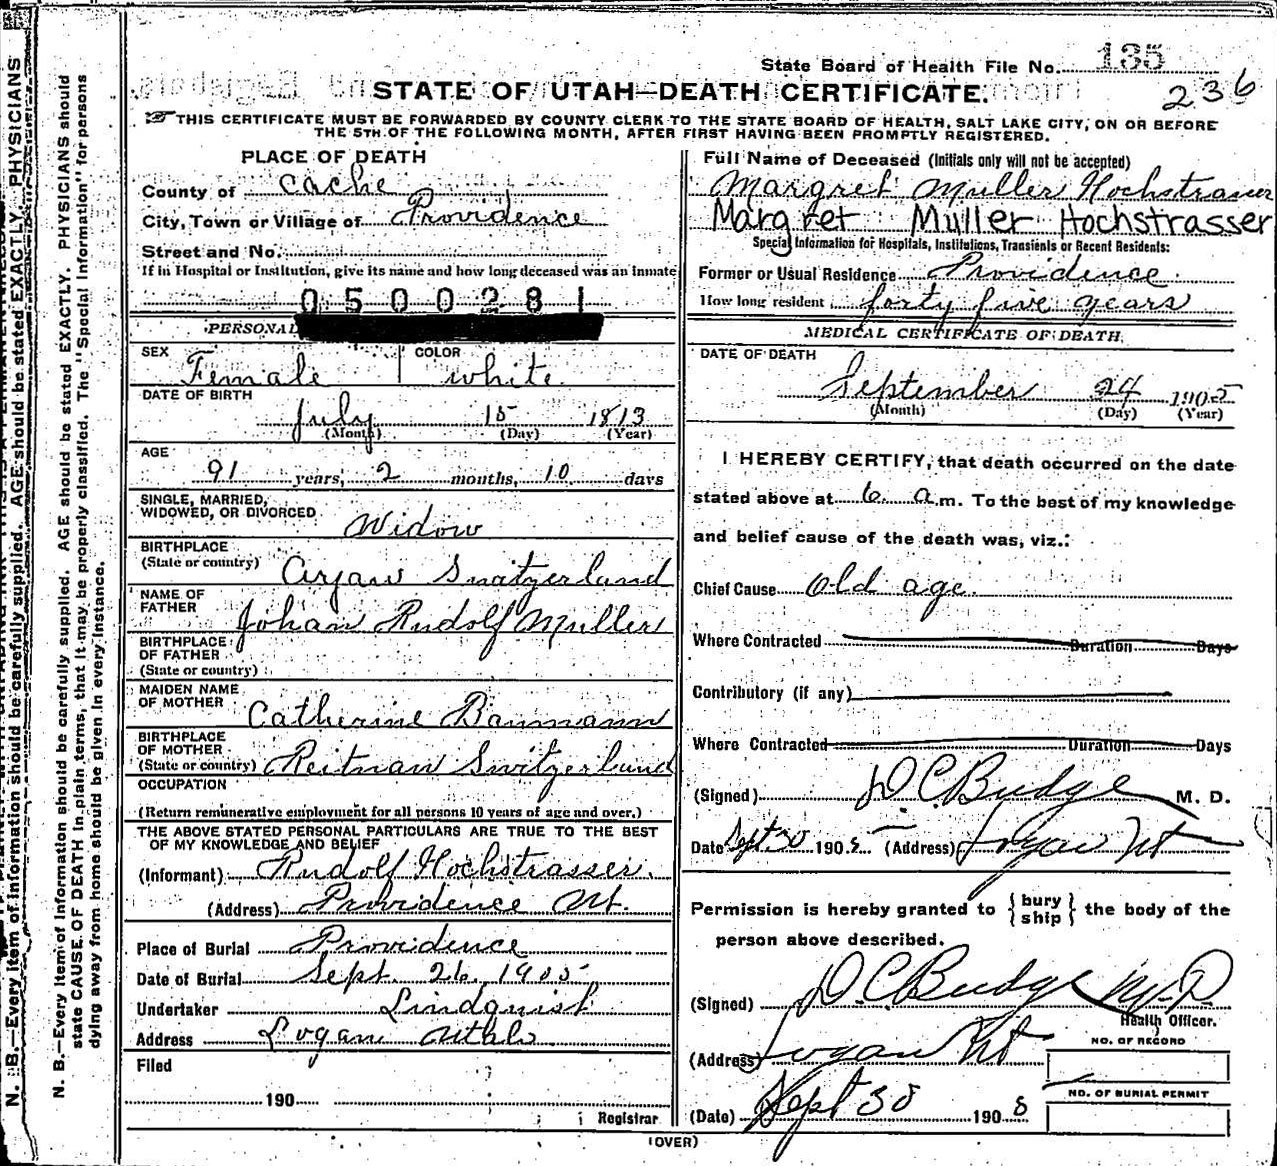 N. B.—Every item of information should be carefully supplied. AGE should be stated EXACTLY. PHYSICIANS
N. B.—Every item of information should be carefully supplied. AGE should be stated EXACTLY. PHYSICIANS should
state CAUSE OF DEATH in plain terms, that it may be properly classified. The "Special Information" for persons
dying away from home should be given in every instance.
State Board of Health File No. 135
236
STATE OF UTAH—DEATH CERTIFICATE.
THIS CERTIFICATE MUST BE FORWARDED BY COUNTY CLERK TO THE STATE BOARD OF HEALTH, SALT LAKE CITY, ON OR BEFORE
THE 5TH OF THE FOLLOWING MONTH, AFTER FIRST HAVING BEEN PROMPTLY REGISTERED.
PLACE OF DEATH
County of Cache
City, Town or Village of Providence
Street and No.
If in Hospital or Institution, give its name and how long deceased was an inmate
0500281
PERSONAL
SEX Female COLOR white
DATE OF BIRTH
July 15 1813
(Month) (Day) (Year)
AGE
91 years, 2 months, 10 days
SINGLE, MARRIED,
WIDOWED, OR DIVORCED Widow
BIRTHPLACE
(State or country) Arjaw Switzerland
NAME OF
FATHER Johan Rudolf Muller
BIRTHPLACE
OF FATHER
(State or country)
MAIDEN NAME
OF MOTHER Catherine Baumann
BIRTHPLACE
OF MOTHER
(State or country) Reitnau Switzerland
OCCUPATION
(Return remunerative employment for all persons 10 years of age and over.)
THE ABOVE STATED PERSONAL PARTICULARS ARE TRUE TO THE BEST
OF MY KNOWLEDGE AND BELIEF
(Informant) Rudolf Hochstrasser.
(Address) Providence Ut.
Place of Burial Providence
Date of Burial Sept. 26, 1905
Undertaker Lindquist
Address Logan Utah
Filed
190
Registrar
Full Name of Deceased (Initials only will not be accepted)
Margret Muller Hochstrasser
Margret Muller Hochstrasser
Special Information for Hospitals, Institutions, Transients or Recent Residents:
Former or Usual Residence Providence.
How long resident forty five years
MEDICAL CERTIFICATE OF DEATH.
DATE OF DEATH
September 24 1905
(Month) (Day) (Year)
I HEREBY CERTIFY, that death occurred on the date
stated above at 6 a.m. To the best of my knowledge
and belief cause of the death was, viz.:
Chief Cause Old age.
Where Contracted Duration Days
Contributory (if any)
Where Contracted Duration Days
(Signed) D C Budge M. D.
Date Sept 30 1905 (Address) Logan Ut
Permission is hereby granted to { bury ship } the body of the
person above described.
(Signed) D C Budge M.D.
Health Officer.
(Address) Logan Ut
NO. OF RECORD
NO. OF BURIAL PERMIT
(Date) Sept 30 1905
(OVER)